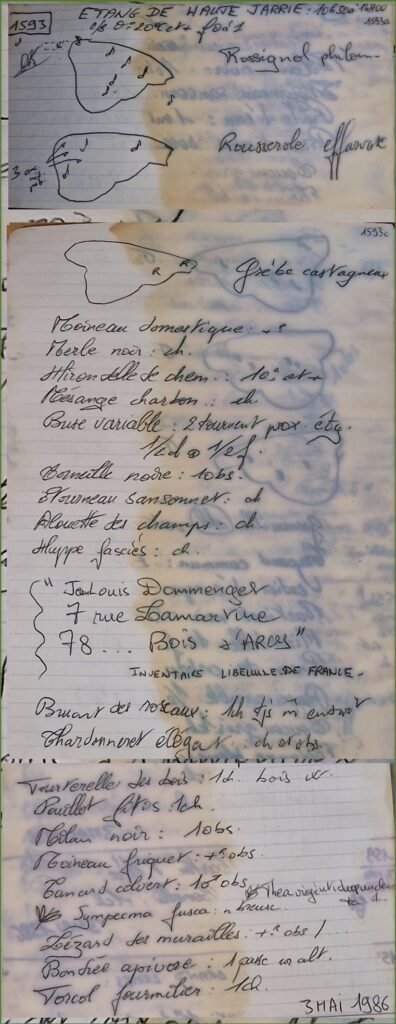 1593
ETANG DE HAUTE JARRIE - 10h30 à 14H00
1593a
θ = 20°C et +
OK
Rossignol philom-
Rousserole effarvate
3 ch
1593c
R
R
Grèbe castagneux
Moineau domestique :
Merle noir : ch.
Hirondelle de chem. : 10° et +
Mésange charbon : ch.
Buse variable : 2 tournent prox. étg.
Corneille noire : 1 obs.
Etourneau sansonnet : ch
Alouette des champs : ch
Huppe fasciée : ch.
" Jean Louis Dommenget
7 rue Lamartine
78 ... Bois d'ARCYS "
INVENTAIRE LIBELLULE DE FRANCE -
Bruant des roseaux : 1ch tjs m endroit
Chardonneret élégant : ch et obs.
Tourterelle des bois : 1ch. bois
Pouillot fitis : 1ch.
Milan noir : 1 obs.
Moineau friquet : + obs.
Canard colvert : 1♂ obs.
Sympecma fusca :
Lézard des murailles : + obs /
Bondrée apivore : 1 passe en alt.
Torcol fourmilier : 1ch
3 MAI 1986